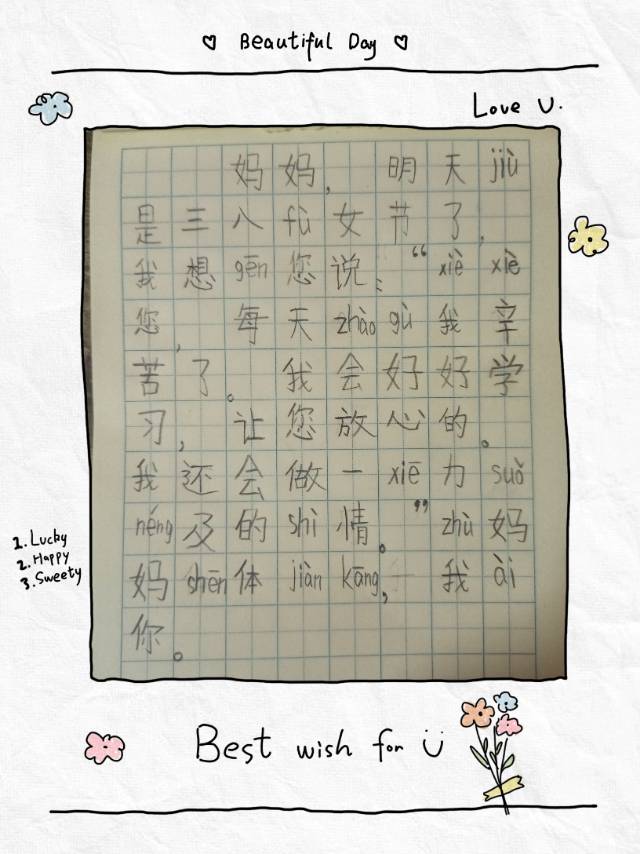 Beautiful Day
Love U.
妈妈,明天jiù
是三八fù女节了,
我想gēn您说:“xiè xiè
您,每天zhào gù我辛
苦了。我会好好学
习,让您放心的。
我还会做一xiē力suǒ
néng及的shì情。”zhù妈
妈shēn体jiàn kāng,我ài
你。
1. Lucky
2. Happy
3. Sweety
Best wish for U